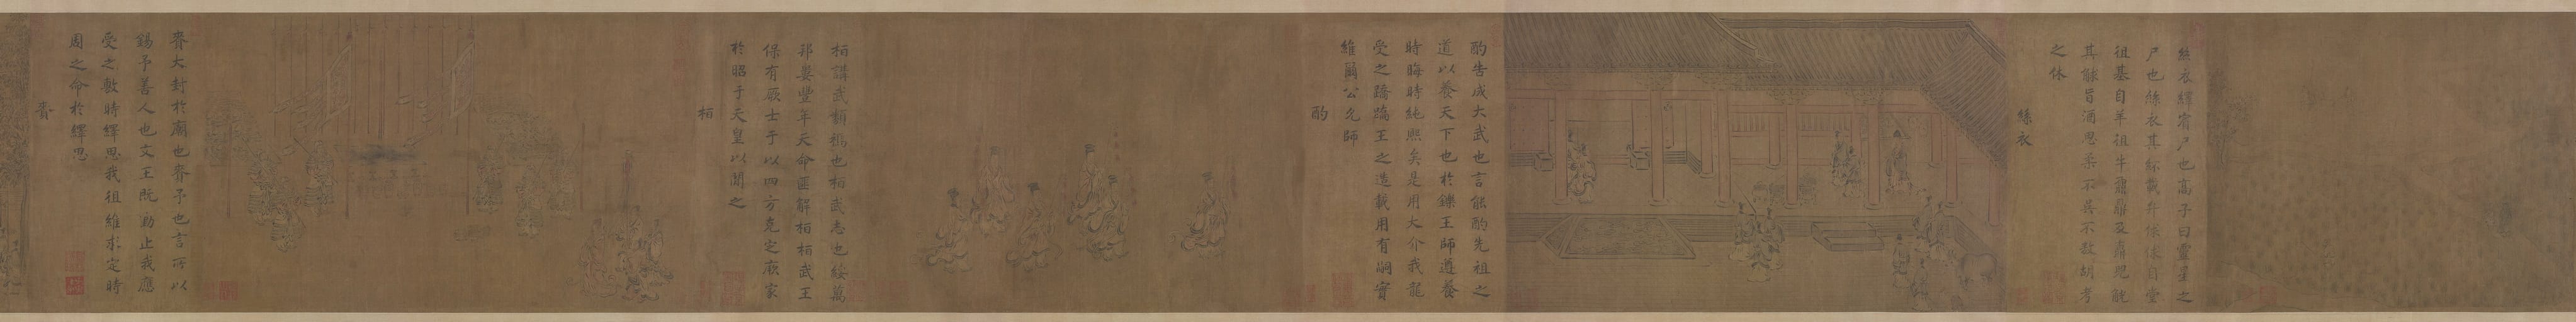 絲衣繹賓尸也高子曰靈星之
尸也絲衣其紑載弁俅俅自堂
徂基自羊徂牛鼐鼎及鼒兕觥
其觩旨酒思柔不吳不敖胡考
之休
絲衣
酌告成大武也言能酌先祖之
道以養天下也於鑠王師遵養
時晦時純熙矣是用大介我龍
受之蹻蹻王之造載用有嗣實
維爾公允師
酌
桓講武類禡也桓武志也綏萬
邦婁豐年天命匪解桓桓武王
保有厥士于以四方克定厥家
於昭于天皇以閒之
桓
賚大封於廟也賚予也言所以
錫予善人也文王既勤止我應
受之敷時繹思我徂維求定時
周之命於繹思
賚